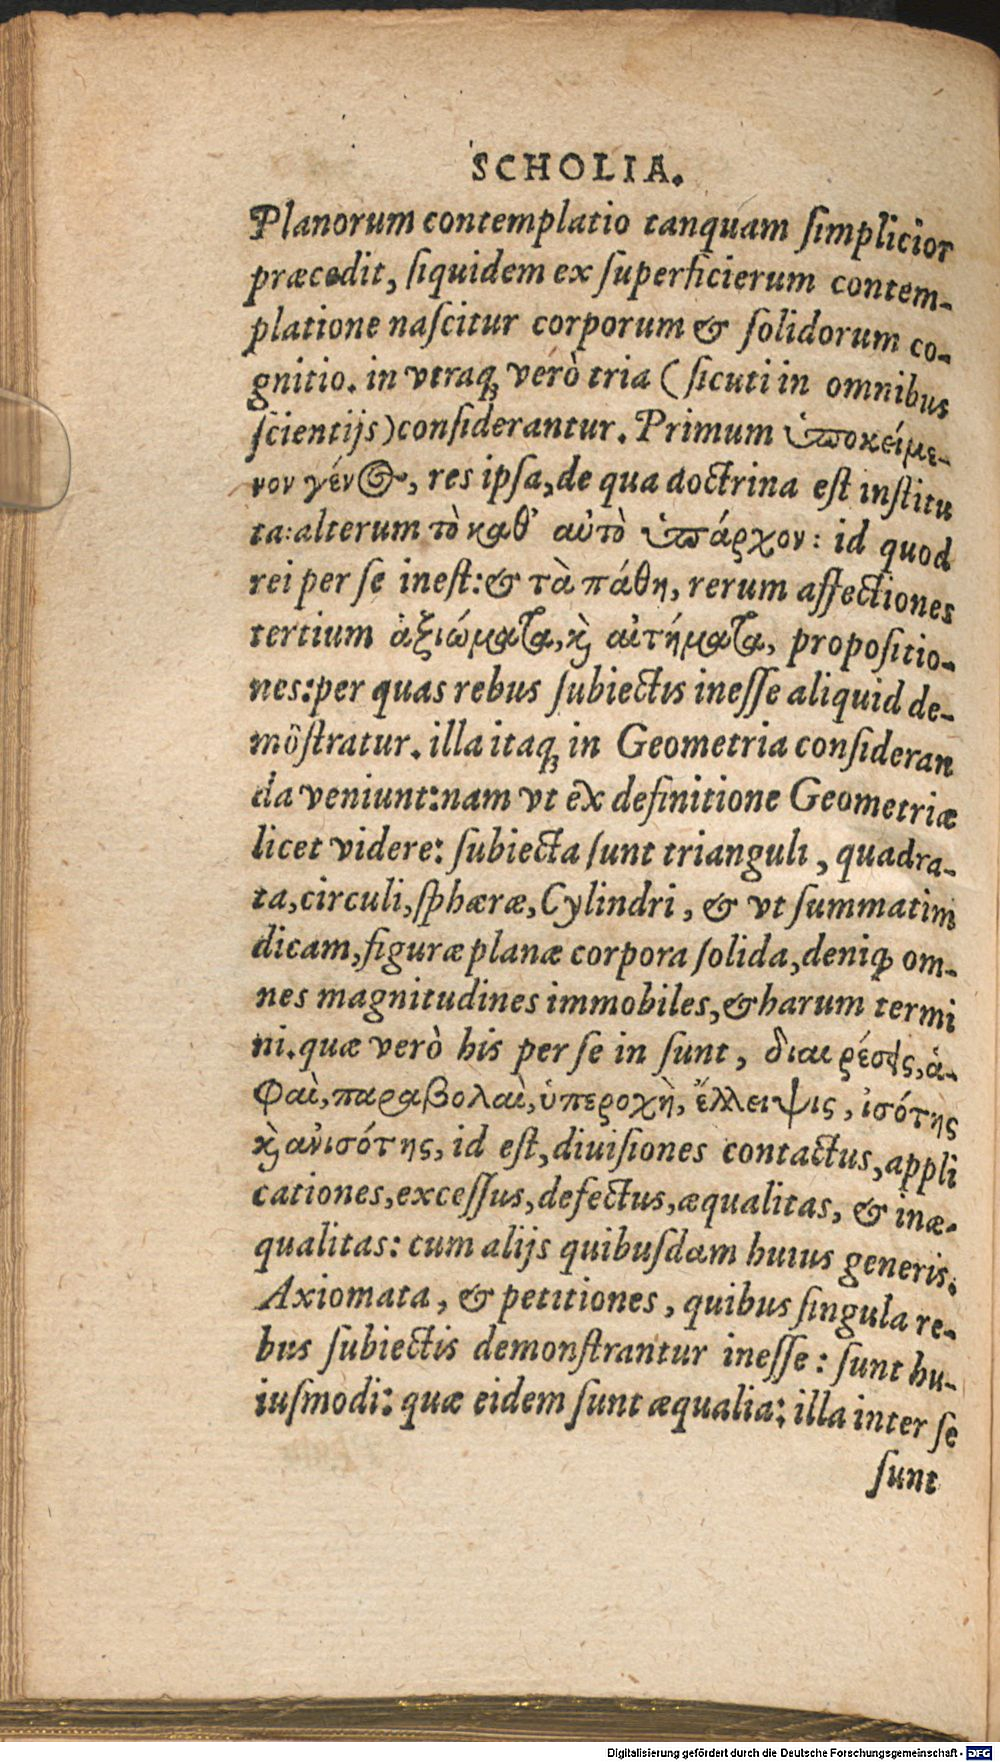 SCHOLIA.
Planorum contemplatio tanquam ſimplicior
præcedit, ſiquidem ex ſuperficierum contem-
platione naſcitur corporum & ſolidorum co-
gnitio. in vtraq; verò tria (ſicuti in omnibus
ſcientijs) conſiderantur. Primum ὑποκείμε-
νον γένος, res ipſa, de qua doctrina eſt inſtitu
ta: alterum τὸ καθ’ αὑτὸ ὑπάρχον: id quod
rei per ſe ineſt: & τὰ πάθη, rerum affectiones
tertium ἀξιώματα, ϗ αἰτήματα, propoſitio-
nes: per quas rebus ſubiectis ineſſe aliquid de-
mõſtratur. illa itaq; in Geometria conſideran
da veniunt: nam vt ex definitione Geometriæ
licet videre: ſubiecta ſunt trianguli, quadra-
ta, circuli, ſphæræ, Cylindri, & vt ſummatim
dicam, figuræ planæ corpora ſolida, deniq; om-
nes magnitudines immobiles, & harum termi
ni. quæ verò his per ſe in ſunt, διαιρέσεις, ἁ-
φαὶ, παραβολαὶ, ὑπεροχὴ, ἔλλειψις, ἰσότης
ϗ ἀνισότης, id eſt, diuiſiones contactus, appli
cationes, exceſſus, defectus, æqualitas, & inæ-
qualitas: cum alijs quibuſdam huius generis.
Axiomata, & petitiones, quibus ſingula re-
bus ſubiectis demonſtrantur ineſſe: ſunt hu-
iuſmodi: quæ eidem ſunt æqualia: illa inter ſe
ſunt
Digitalisierung gefördert durch die Deutsche Forschungsgemeinschaft - DFG